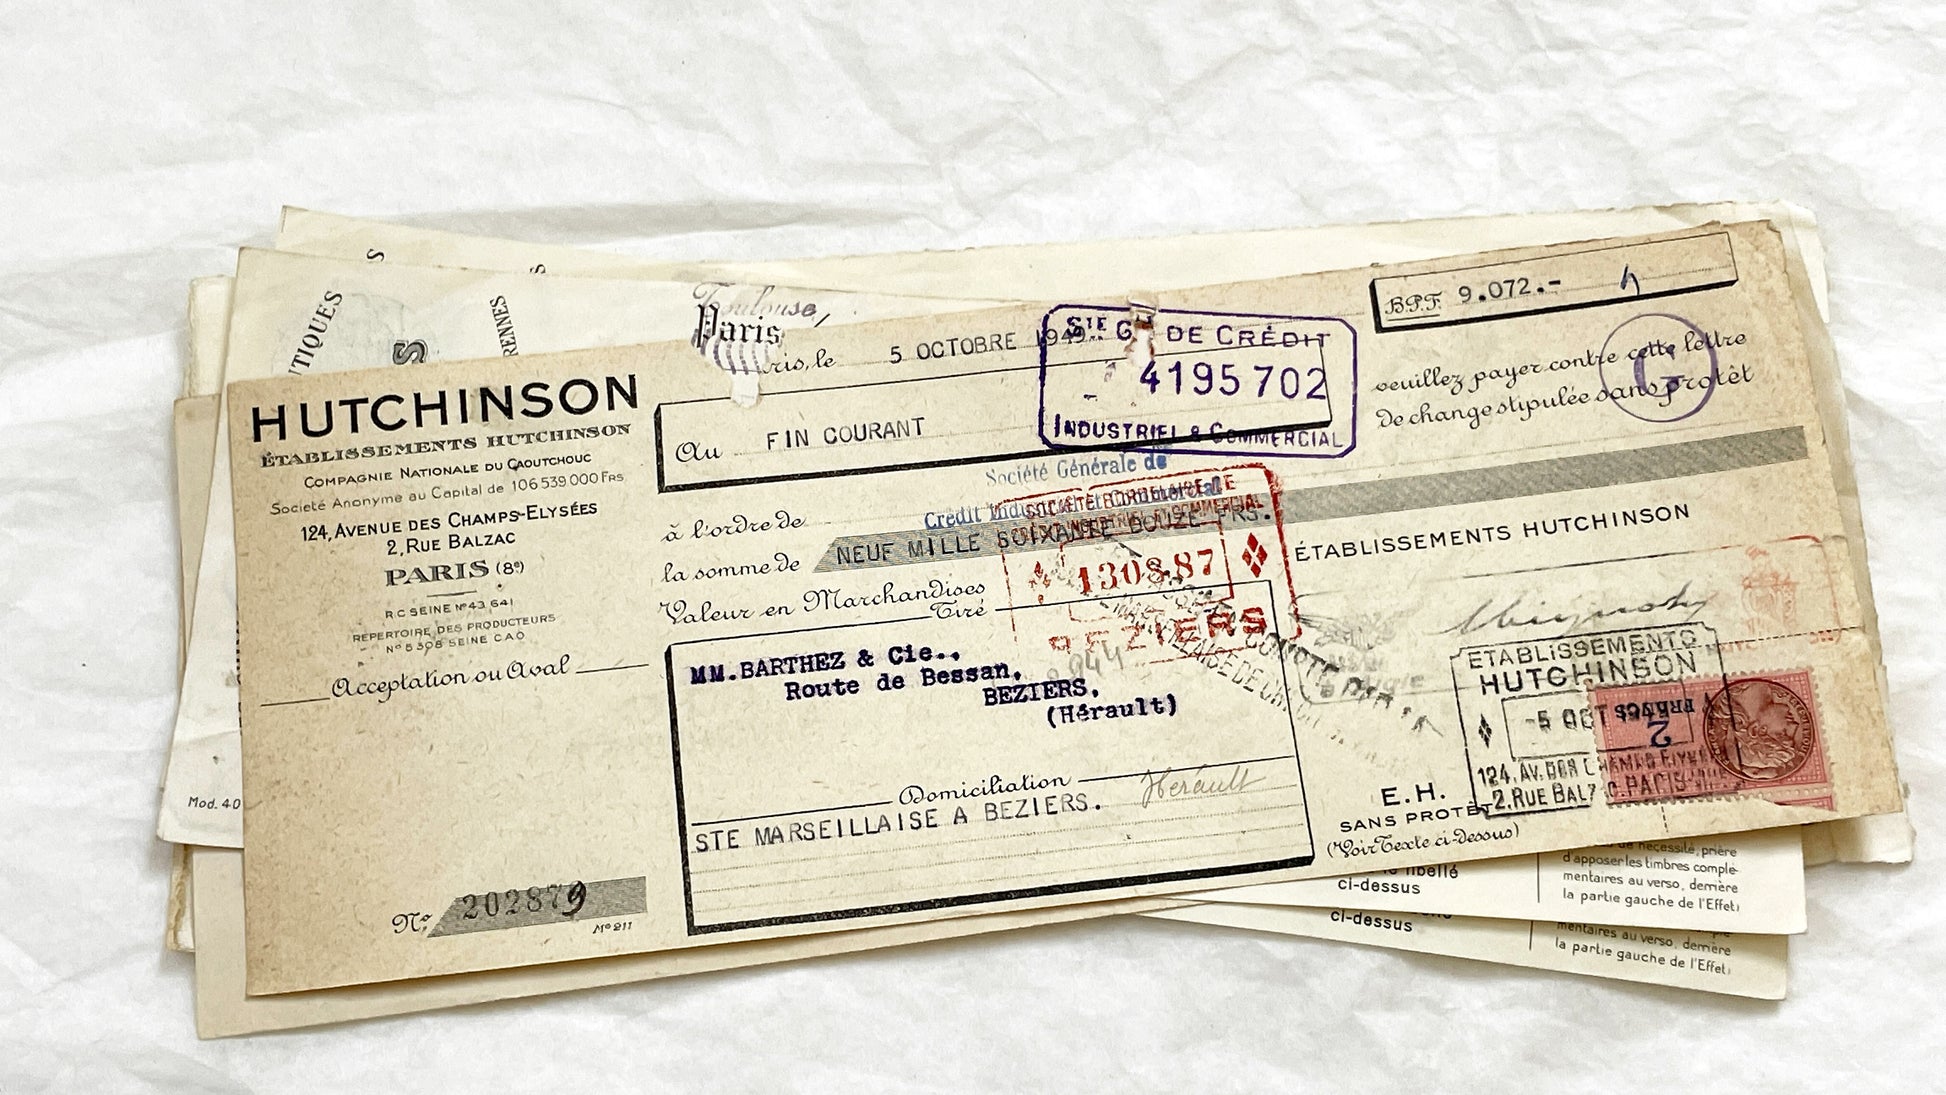 TIQUES
S
RENNES
S
S
Toulouse,
Paris
ris, le 5 OCTOBRE 1949
B.P.F. 9.072.-
HUTCHINSON
ÉTABLISSEMENTS HUTCHINSON
COMPAGNIE NATIONALE DU CAOUTCHOUC
Société Anonyme au Capital de 106 539 000 Frs
124, AVENUE DES CHAMPS-ELYSÉES
2, RUE BALZAC
PARIS (8e)
R.C SEINE Nº 43 641
REPERTOIRE DES PRODUCTEURS
Nº 5398 SEINE CAO
Acceptation ou Aval
Nº: 202879
Mº 211
Mod. 40
Au FIN COURANT
STE Gle DE CRÉDIT
4195 702
INDUSTRIEL & COMMERCIAL
veuillez payer contre cette lettre
De change stipulée sans protêt
G
à l'ordre de
Société Générale de
Crédit Industriel et Commercial
la somme de NEUF MILLE SOIXANTE DOUZE FRS.
SOCIÉTÉ BORDELAISE DE
CRÉDIT INDUSTRIEL ET COMMERCIAL
130887
BEZIERS
Valeur en Marchandises
Tiré
MM. BARTHEZ & Cie.,
Route de Bessan,
BEZIERS,
(Hérault)
Domiciliation
Herault
STE MARSEILLAISE A BEZIERS.
ÉTABLISSEMENTS HUTCHINSON
ETABLISSEMENTS
HUTCHINSON
-5 OCT
2
FRANCS
124, AV. DES CHAMPS ELYSEES
2. RUE BALZAC. PARIS
E.H.
SANS PROTÊT
(Voir Texte ci-dessus)
libellé
ci-dessus
ci-dessus
de nécessité, prière
d'apposer les timbres complé-
mentaires au verso, derrière
la partie gauche de l'Effet)
mentaires au verso, derrière
la partie gauche de l'Effet)